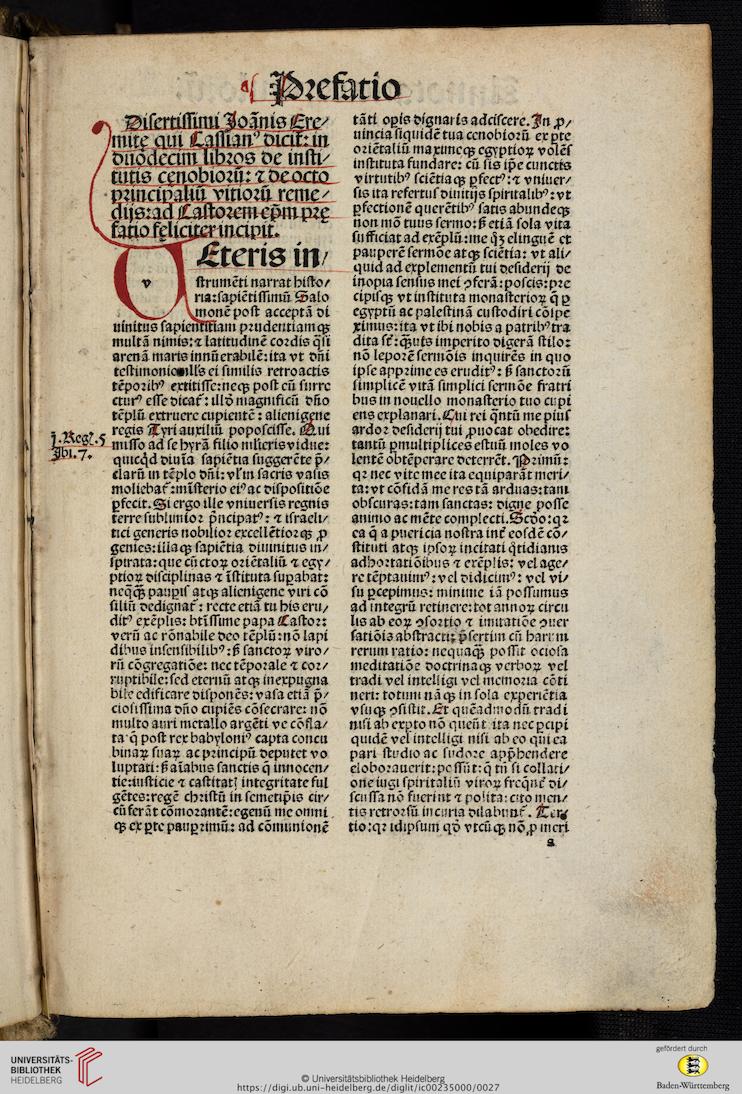 Prefatio
Disertissimi Joãnis Ere/
mitę qui Cassianꝰ dicit̃: in
duõdecim libros de insti/
tutis cenobiorũ: ⁊ de octo
principaliũ vitiorũ reme/
dijs: ad Castorem ep̃m prę
fatio fęliciter incipit.
VEteris in/
strumẽti narrat histo/
ria: sapiẽtissimũ Salo
monẽ post acceptã di
uinitus sapientitiam prudentiamqꝫ
multã nimis: ⁊ latitudinẽ cordis q̃si
arenã maris innũerabilẽ: ita vt dñi
testimonio nullꝰs ei similis retroactis
tẽporibꝰ extitisse: neqꝫ post eũ surre
cturꝰ esse dicat̃: illũ magnificũ dño
tẽplũ extruere cupientẽ: alienigene
regis Tyri auxiliũ poposcisse. Qui
misso ad se hyrã filio mĩieris vidue:
quicq̃d diuĩa sapiẽtia suggerẽte p̃/
clarũ in tẽplo dñi: vl̃ in sacris vasis
moliebat̃: mĩsterio eiꝰ ac dispositiõe
ꝑfecit. Si ergo ille vniuersis regnis
terre sublimior p̃ncipatꝰ: ⁊ israeli/
tici generis nobilior excellẽtiorqꝫ ꝓ
genies: illaqꝫ sapiẽtia diuinitus in/
spirata: que cũctoꝝ oriẽtaliũ ⁊ egy/
ptioꝝ disciplinas ⁊ ĩstituta suꝑabat:
neq̃qꝫ pauꝑis atqꝫ alienigene viri cõ
siliũ dedignat̃: recte etiã tu his eru/
ditꝰ exẽplis: btĩssime papa Castor:
verũ ac rõnabile deo tẽplũ: nõ lapi
dibus insensibilibꝰ: sꝫ sanctoꝝ viro/
rũ cõgregatiõe: nec tẽporale ⁊ cor/
ruptibile: sed eternũ atqꝫ inexpugna
bile edificare disponẽs: vasa etiã p̃/
ciosissima dño cupiẽs cõsecrare: nõ
multo auri metallo argẽti ve cõfla/
ta: q̃ post rex babyloniꝰ capta concu
binaꝝ suaꝝ ac principũ deputet vo
luptati: sꝫ aĩabus sanctis q̃ innocen/
tie: iusticie ⁊ castitatꝭ integritate ful
gẽtes: regẽ christũ in semetip̃is cir/
cũferãt cõmorantẽ: egenũ me omni
qꝫ ex ꝑte pauꝑrimũ: ad cõmunionẽ
j. Regꝭ. 5
Ibi. 7.
tãti oꝑis dignaris adciscere. In ꝓ/
uincia siquidẽ tua cenobiorũ ex ꝑte
oriẽtaliũ maximeqꝫ egyptioꝝ volẽs
instituta fundare: cũ sis ip̃e cunctis
virtutibꝰ sciẽtiaqꝫ ꝑfectꝰ: ⁊ vniuer/
sis ita refertus diuitijs spiritalibꝰ: vt
ꝑfectionẽ querẽtibꝰ satis abundeqꝫ
non mõ tuus sermo: sꝫ etiã sola vita
sufficiat ad exẽplũ: me qꝫ elinguẽ et
pauperẽ sermõe atqꝫ sciẽtia: vt ali/
quid ad explementũ tui desiderij de
inopia sensus mei ꝯferã: poscis: pre
cipisqꝫ vt instituta monasterioꝝ q̃ ꝑ
egyptũ ac palestinã custodiri cõspe
ximus: ita vt ibi nobis a patribꝰ tra
dita sũt: q̃uis imperito digerã stilo:
nõ leporẽ sermõis inquirẽs in quo
ipse apprime es eruditꝰ: sꝫ sanctorũ
simplicẽ vitã simplici sermõe fratri
bus in nouello monasterio tuo cupi
ens explanari. Cui rei q̃ntũ me pius
ardor desiderij tui ꝓuocat obedire:
tantũ ꝑmultiplices estuũ moles vo
lentẽ obtẽperare deterrẽt. Primũ:
qꝛ nec vite mee ita equiparãt meri/
ta: vt cõfidã me res tã arduas: tam
obscuras: tam sanctas: digne posse
animo ac mẽte complecti. Scđo: qꝛ
ea q̃ a puericia nostra int̃ eosdẽ cõ/
stituti atqꝫ ip̃soꝝ incitati q̃tidianis
adhortatiõibus ⁊ exẽplis: vel age/
re tẽptauimꝰ: vel didicimꝰ: vel vi/
su ꝑcepimus: minime iã possumus
ad integrũ retinere: tot annoꝝ circu
lis ab eoꝝ ꝯsortio ⁊ imitatiõe ꝯuer
satiõis abstracti: p̃sertim cũ harum
rerum ratio: nequaqꝫ possit ociosa
meditatiõe doctrinaqꝫ verboꝝ vel
tradi vel intelligi vel memoria cõti
neri: totum nãqꝫ in sola experiẽtia
vsuqꝫ ꝯsistit. Et quẽadmodũ tradi
nisi ab exꝑto nõ queũt: ita nec ꝑcipi
quidẽ vel intelligi nisi ab eo qui ea
pari studio ac sudore app̃hendere
eloborauerit: possũt: q̃ tñ si collati/
one iugi spiritaliũ viroꝝ freq̃nt̃ di/
scussa nõ fuerint ⁊ polita: cito men/
tis retrorsũ incuria dilabunt̃. Ter
tio: qꝛ idipsum qđ vtcũqꝫ nõ ꝓ meri
a
UNIVERSITÄTS-
BIBLIOTHEK
HEIDELBERG
© Universitätsbibliothek Heidelberg
https://digi.ub.uni-heidelberg.de/diglit/ic00235000/0027
gefördert durch
Baden-Württemberg